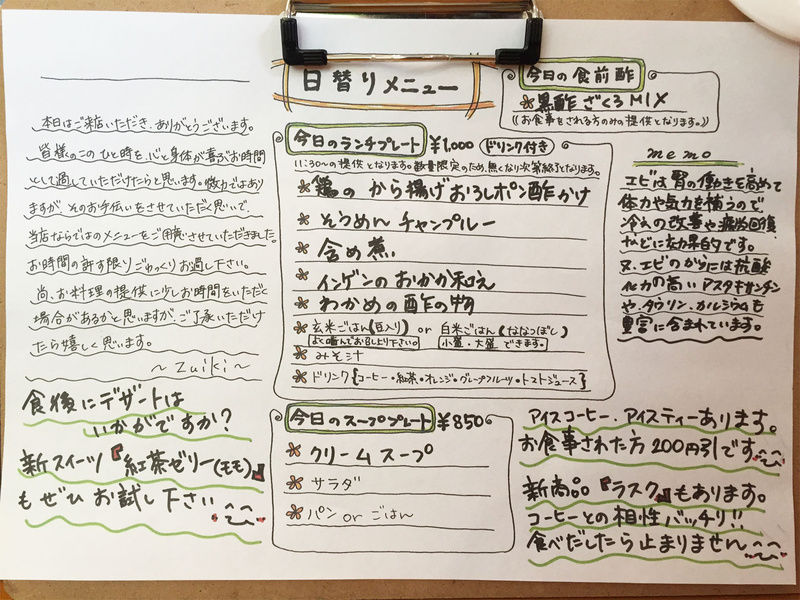 日替りメニュー
今日の食前酢
黒酢ざくろMIX
((お食事をされる方のみの提供となります。))
本日はご来店いただき、ありがとうございます。
皆様のこのひと時を、心と身体が喜ぶお時間
として過していただけたらと思います。微力ではあり
ますが、そのお手伝いをさせていただく思いで、
当店ならではのメニューをご用意させていただきました。
お時間の許す限りごゆっくりお過し下さい。
尚、お料理の提供に少しお時間をいただく
場合があるかと思いますが、ご了承いただけ
たら嬉しく思います。
～Zuiki～
食後にデザートは
いかがですか？
新スイーツ『紅茶ゼリー(モモ)』
もぜひお試し下さい
今日のランチプレート ¥1,000 ドリンク付き
11:30～の提供となります。数量限定のため、無くなり次第終了となります。
鶏のから揚げおろしポン酢かけ
そうめんチャンプルー
含め煮
インゲンのおかか和え
わかめの酢の物
玄米ごはん(豆入り) or 白米ごはん(ななつぼし)
よく噛んでお召し上り下さい。 小盛・大盛できます。
みそ汁
ドリンク{コーヒー・紅茶・オレンジ・グレープフルーツ・トマトジュース}
今日のスーププレート ¥850
クリームスープ
サラダ
パン or ごはん
memo
エビは胃の働きを高めて
体力や気力を補うので
冷えの改善や疲労回復
などに効果的です。
又、エビのからには抗酸
化力の高いアスタキサンチン
や、タウリン、カルシウムも
豊富に含まれています。
アイスコーヒー、アイスティーあります。
お食事された方200円引です
新商品『ラスク』もあります。
コーヒーとの相性バッチリ!!
食べだしたら止まりません